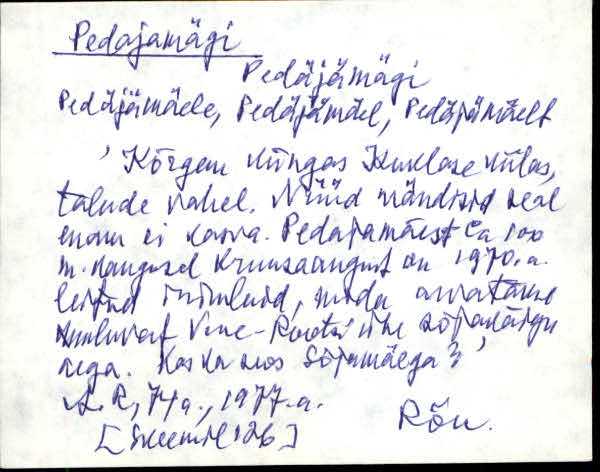 Pedajamägi
Pedäjämägi
Pedäjämäele, Pedäjämäel, Pedäjämäelt
'Kõrgem küngas Kuklase külas,
talude vahel. Nüüd mändisid seal
enam ei kasva. Pedajamäest ca 100
m. kaugusel kruusaaugust on 1970. a.
leitud inimluid, mida arvatakse
kuuluvat Vene-Rootsi ühe sõjakäigu
aega. Kas ka seos Sõjamäega?'
A. R, 74 a., 1977. a.
[Skeemil 126] Rõu.